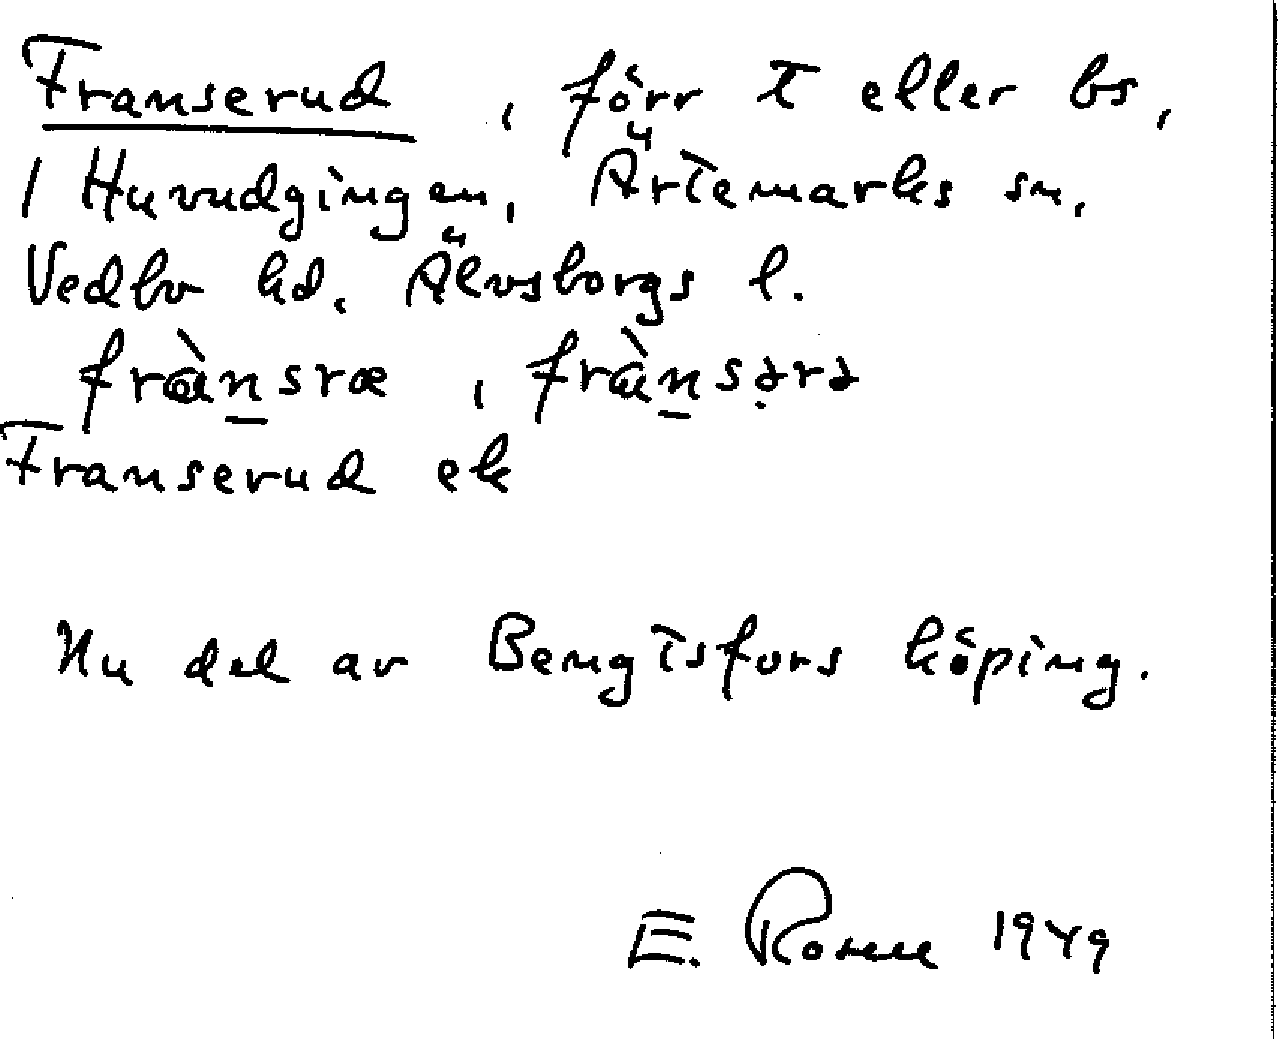 Franserud, förr t eller bs,
/ Huvudgingen, Ärtemarks sn,
Vedbo hd, Älvsborgs l.
frànsræ, frànsərə
Franserud ek
Nu del av Bengtsfors köping.
E. 1949